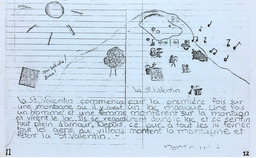 La St. Valentin
La St. Valentin commença par la première fois sur
une montagne où il y avait un lac magique. Une fois
un homme et une femme montèrent sur la montagne
et virent le lac. Ils se regardèrent dans le lac et se sentir
tout plein d'amour. Depuis ce jour, à tout les 14 février,
tout les gens du village montent la montagne et
fêtent la St. Valentin.
11
12